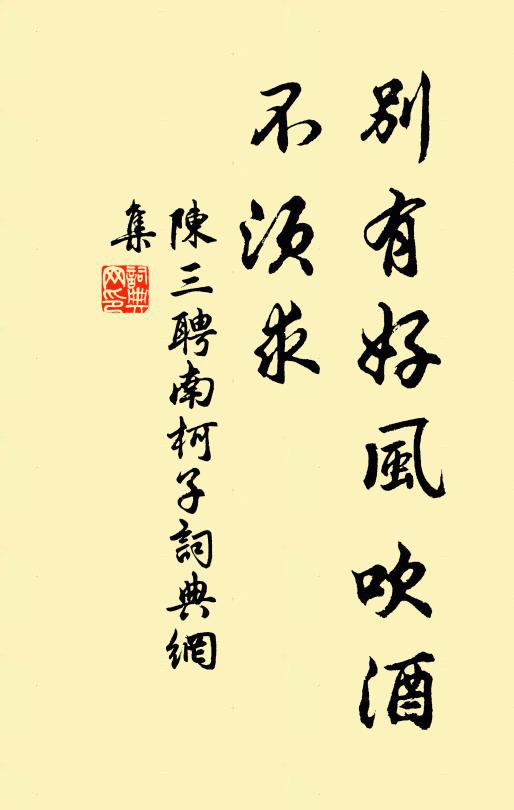 別有好風吹酒
不須求
陳三聘南柯子詞典網
集
詞典
网印